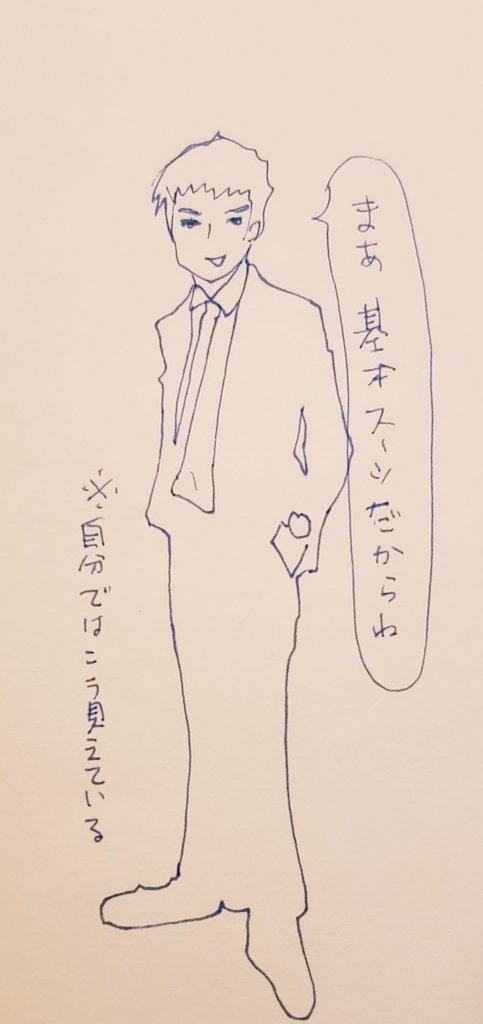 まあ 基本スーツだからね
※自分ではこう見えている